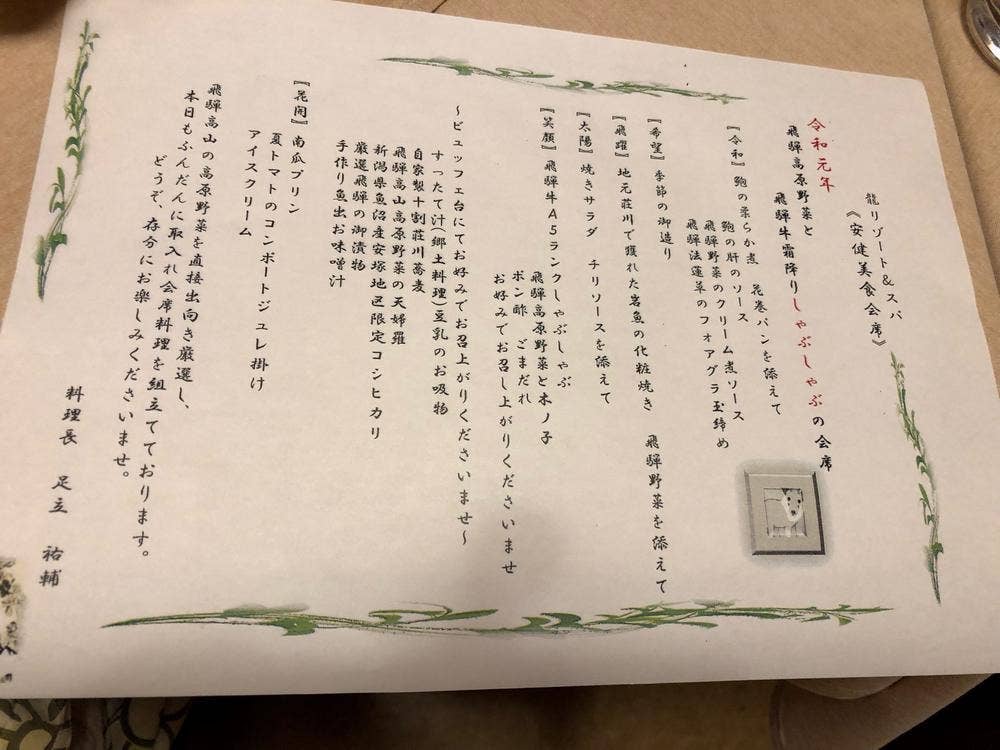 龍リゾート&スパ
《安健美食会席》
令和元年
飛騨高原野菜と
飛騨牛霜降りしゃぶしゃぶの会席
『令和』鮑の柔らか煮 花巻パンを添えて
鮑の肝のソース
飛騨野菜のクリーム煮ソース
飛騨法蓮草のフォアグラ玉締め
『希望』季節の御造り
『飛躍』地元荘川で獲れた岩魚の化粧焼き 飛騨野菜を添えて
『太陽』焼きサラダ チリソースを添えて
『笑顔』飛騨牛A5ランクしゃぶしゃぶ
飛騨高原野菜と木ノ子
ポン酢 ごまだれ
お好みでお召し上がりくださいませ
~ビュッフェ台にてお好みでお召上がりくださいませ~
すったて汁(郷土料理)豆乳のお吸物
自家製十割荘川蕎麦
飛騨高山高原野菜の天婦羅
新潟県魚沼産安塚地区限定コシヒカリ
厳選飛騨の御漬物
手作り魚出お味噌汁
『花開』南瓜プリン
夏トマトのコンポートジュレ掛け
アイスクリーム
飛騨高山の高原野菜を直接出向き厳選し、
本日もふんだんに取入れ会席料理を組立てております。
どうぞ、存分にお楽しみくださいませ。
料理長 足立 祐輔